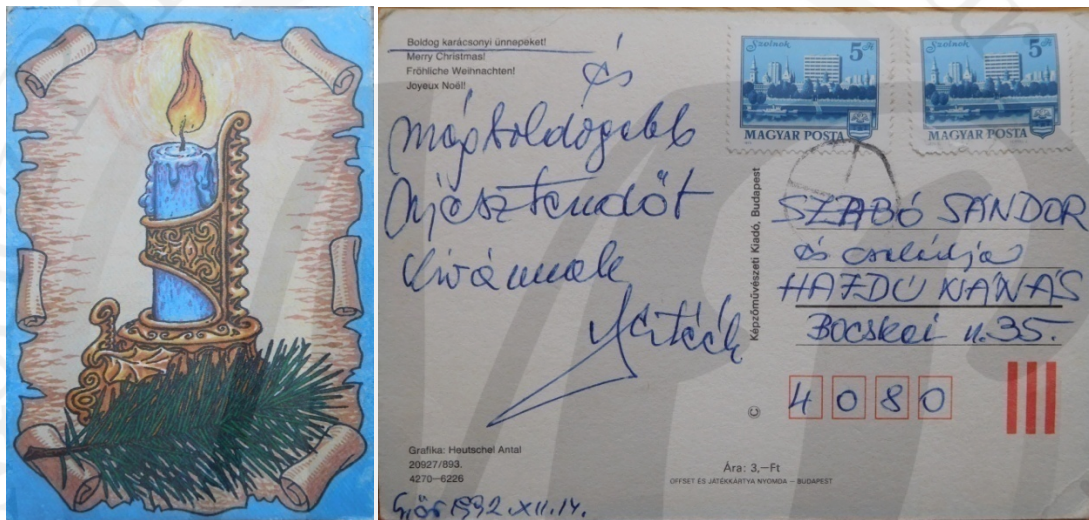 Boldog karácsonyi ünnepeket!
Merry Christmas!
Fröhliche Weihnachten!
Joyeux Noël!
és
mégboldogabb
Újesztendőt
kívánnak
Grafika: Heutschel Antal
20927/893.
4270–6226
Győr 1992.XII.14.
Képzőművészeti Kiadó, Budapest
©
Szolnok
5 Ft
MAGYAR POSTA
Szolnok
5 Ft
MAGYAR POSTA
SZABÓ SÁNDOR
és családja
HAJDÚNÁNÁS
Bocskai u. 35.
4080
Ára: 3,–Ft
OFFSET ÉS JÁTÉKKÁRTYA NYOMDA – BUDAPEST